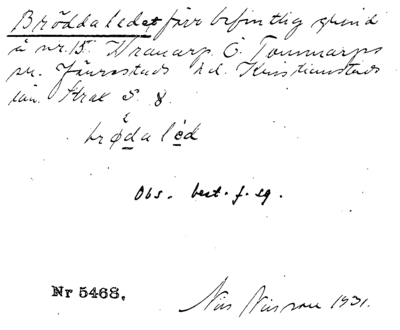 Bröddaledet förr befintlig grind
å nr. 15. Vranarp Ö. Tommarps
sn. Järrestads hd. Kristianstads
län. Strax S. 8.
brødaléd
Obs. best. f. sg.
Nr 5468.
Nils Nilsson 1931.